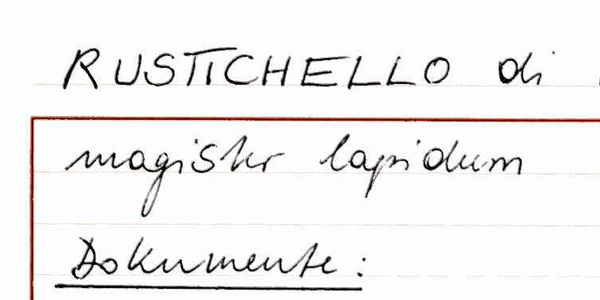 RUSTICHELLO di
magister lapidum
Dokumente: